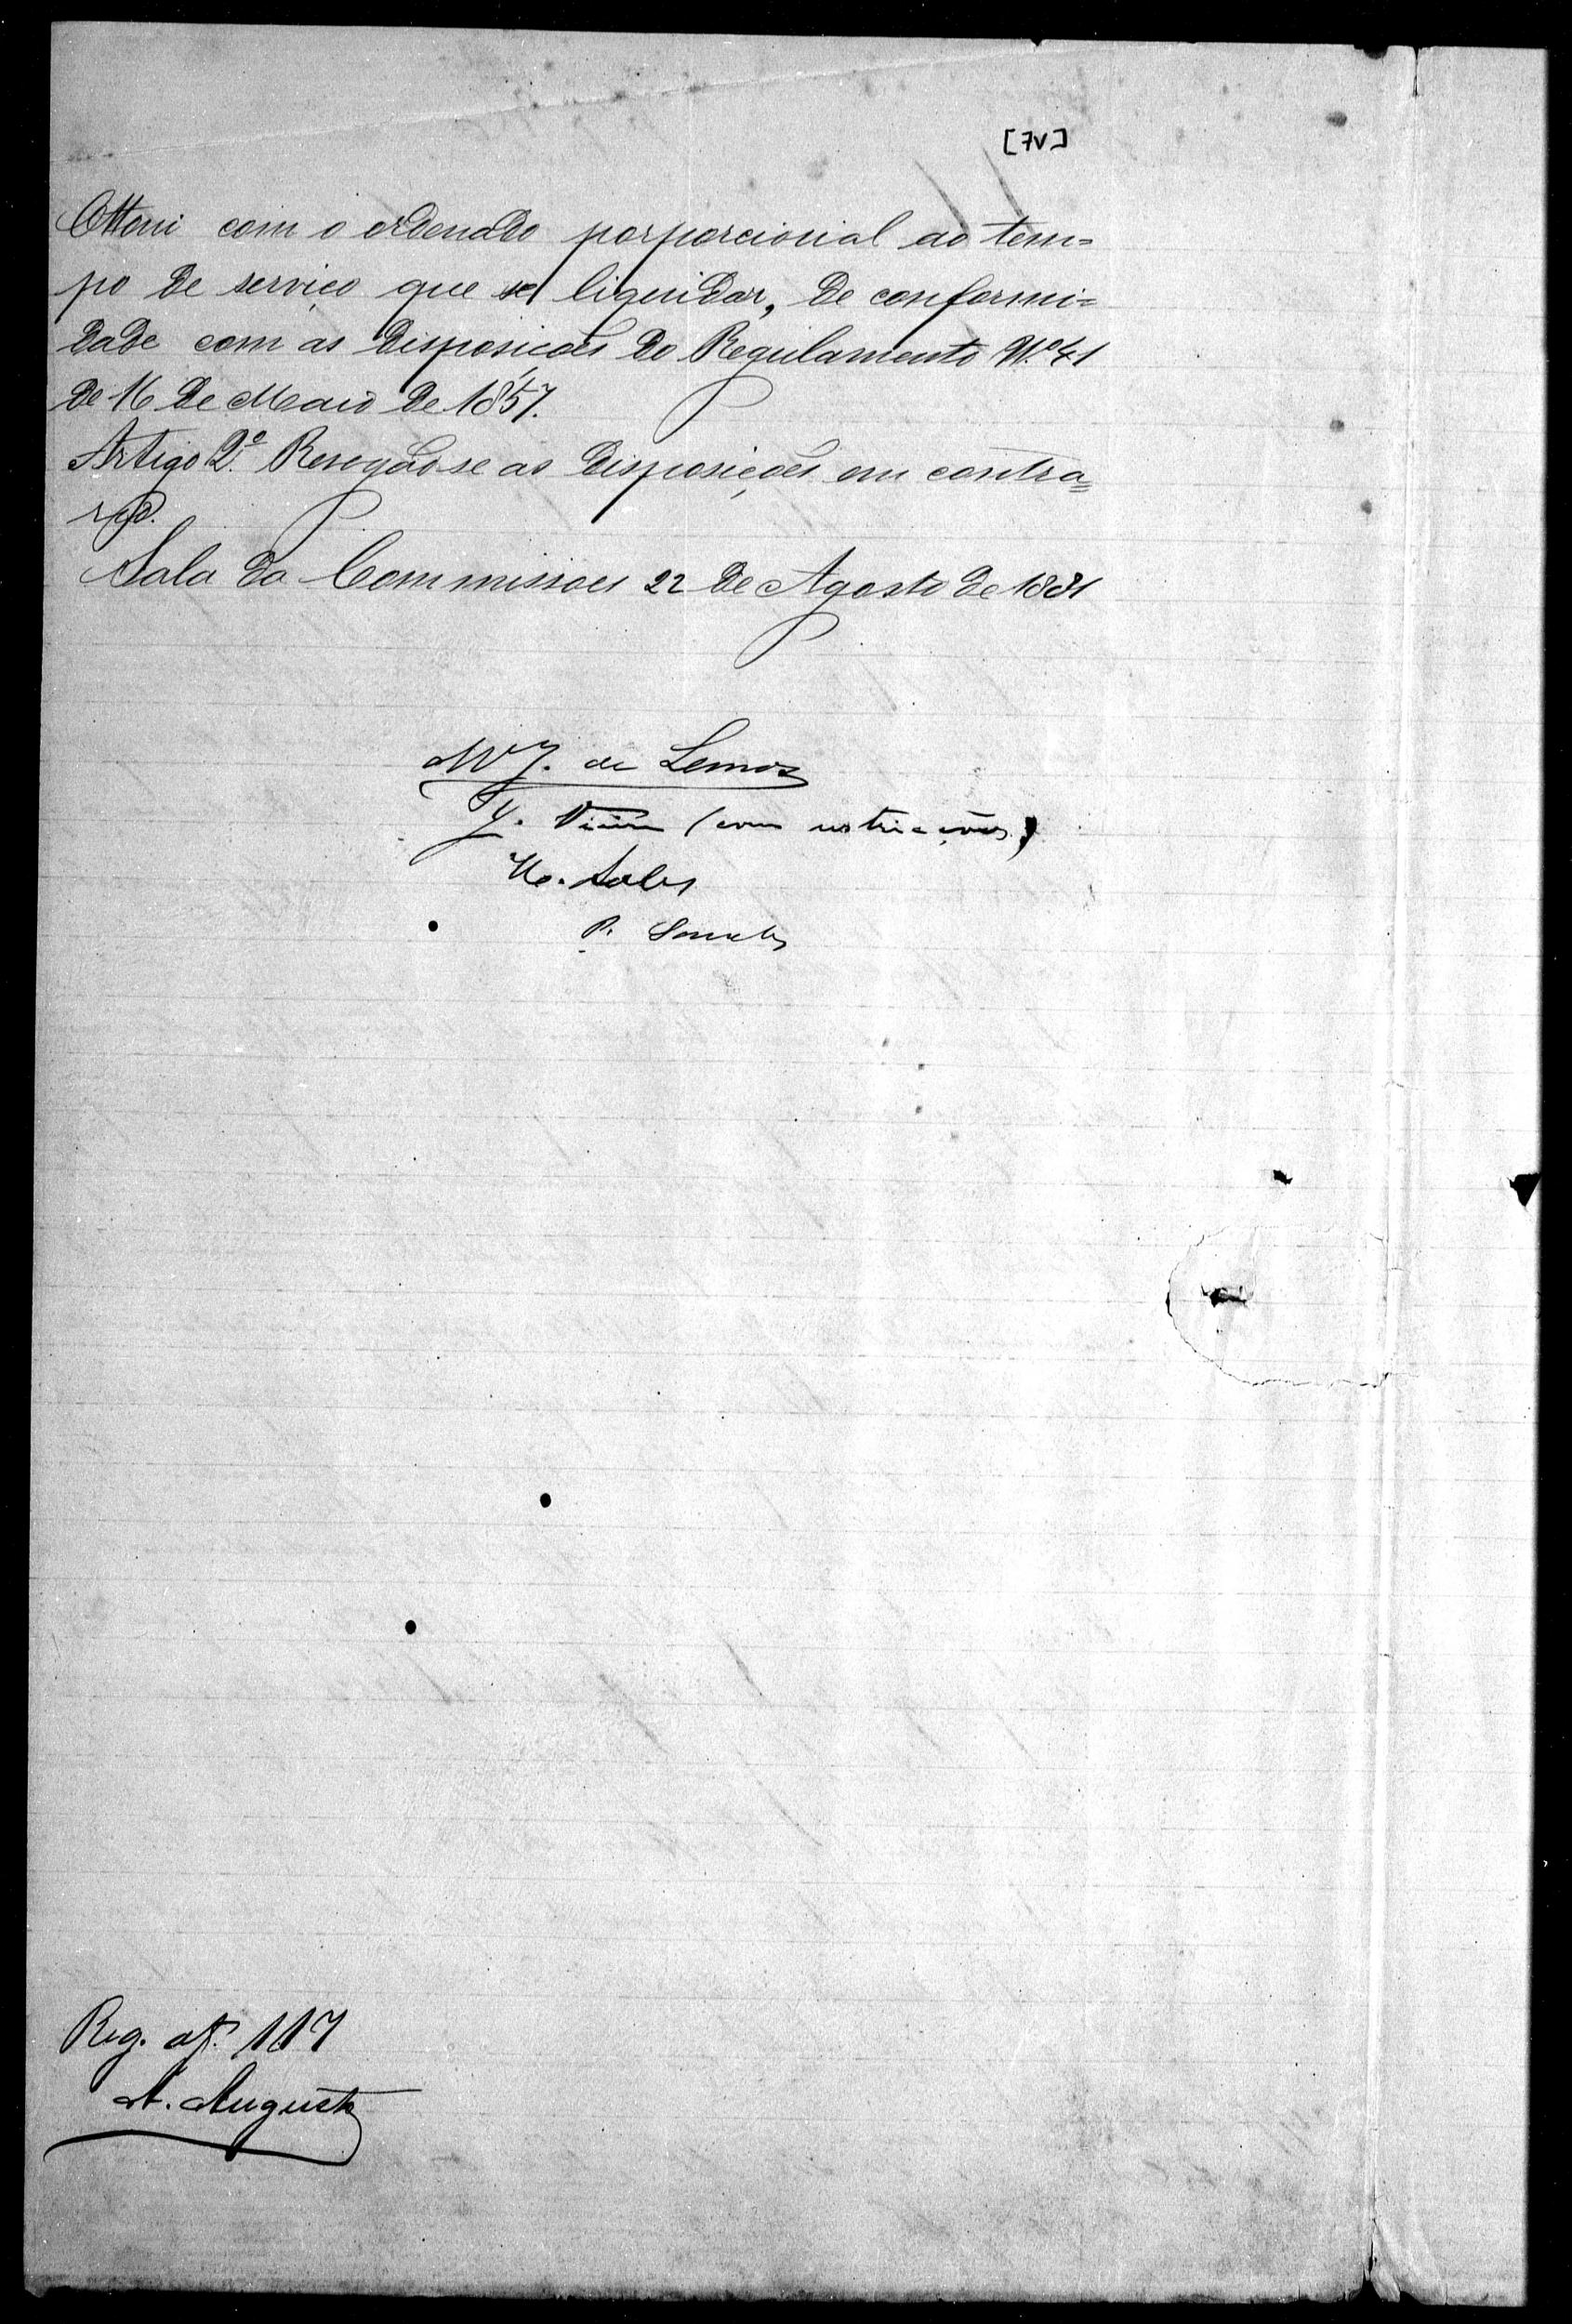 [7v]
Ottoni com o ordenado porporcional ao tem=
po de serviço que se liquidar, de conformi=
dade com as disposições do Regulamento Nº 41
de 16 de Maio de 1857.
Artigo 2º. Revogãose as disposições em contra=
rio.
Sala da Commissões 22 de Agosto de 1881
M J. de Lemos
J. (com restricções)
Reg. af. 117
A. Augusto